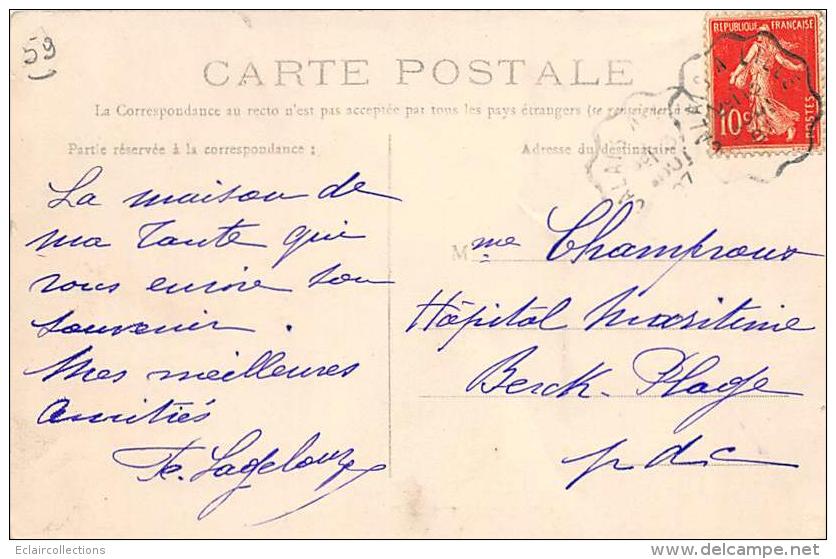 59
CARTE POSTALE
La Correspondance au recto n'est pas acceptée par tous les pays étrangers (se renseigner à la
Partie réservée à la correspondance :
Adresse du destinataire
RÉPUBLIQUE FRANÇAISE
10c
POSTES
La maison de
ma Tante qui
vous envoie son
souvenir.
Mes meilleures
amitiés
Mme Champroux
Hôpital Maritime
Berck-Plage
p d c
Eclaircollections
http://www.delcampe.net